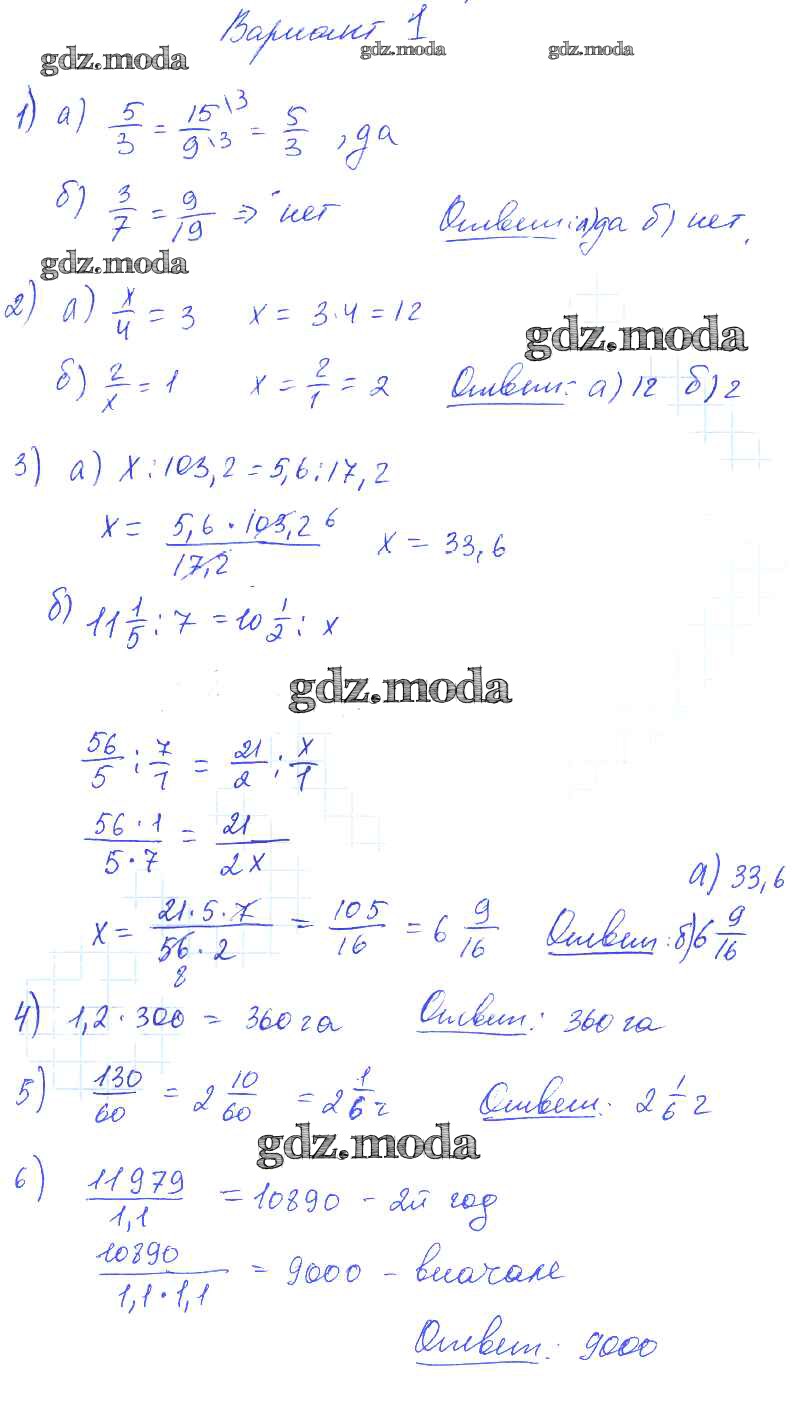 Вариант 1
gdz.moda gdz.moda gdz.moda
1) а) 5/3 = 15\3/9\3 = 5/3, да
б) 3/7 = 9/19 => нет Ответ: а) да б) нет.
gdz.moda
2) а) x/4 = 3 x = 3·4 = 12
gdz.moda
б) 2/x = 1 x = 2/1 = 2 Ответ: а) 12 б) 2
3) а) x : 103,2 = 5,6 : 17,2
x = 5,6 · 103,2 6/17,2 x = 33,6
б) 11 1/5 : 7 = 10 1/2 : x
gdz.moda
56/5 : 7/1 = 21/2 : x/1
56 · 1/5 · 7 = 21/2x
а) 33,6
x = 21·5·7/56·2 8 = 105/16 = 6 9/16 Ответ: б) 6 9/16
4) 1,2 · 300 = 360 га Ответ: 360 га
5) 130/60 = 2 10/60 = 2 1/6 г Ответ: 2 1/6 г
gdz.moda
6) 11979/1,1 = 10890 – 2й год
10890/1,1 · 1,1 = 9000 – вначале
Ответ: 9000